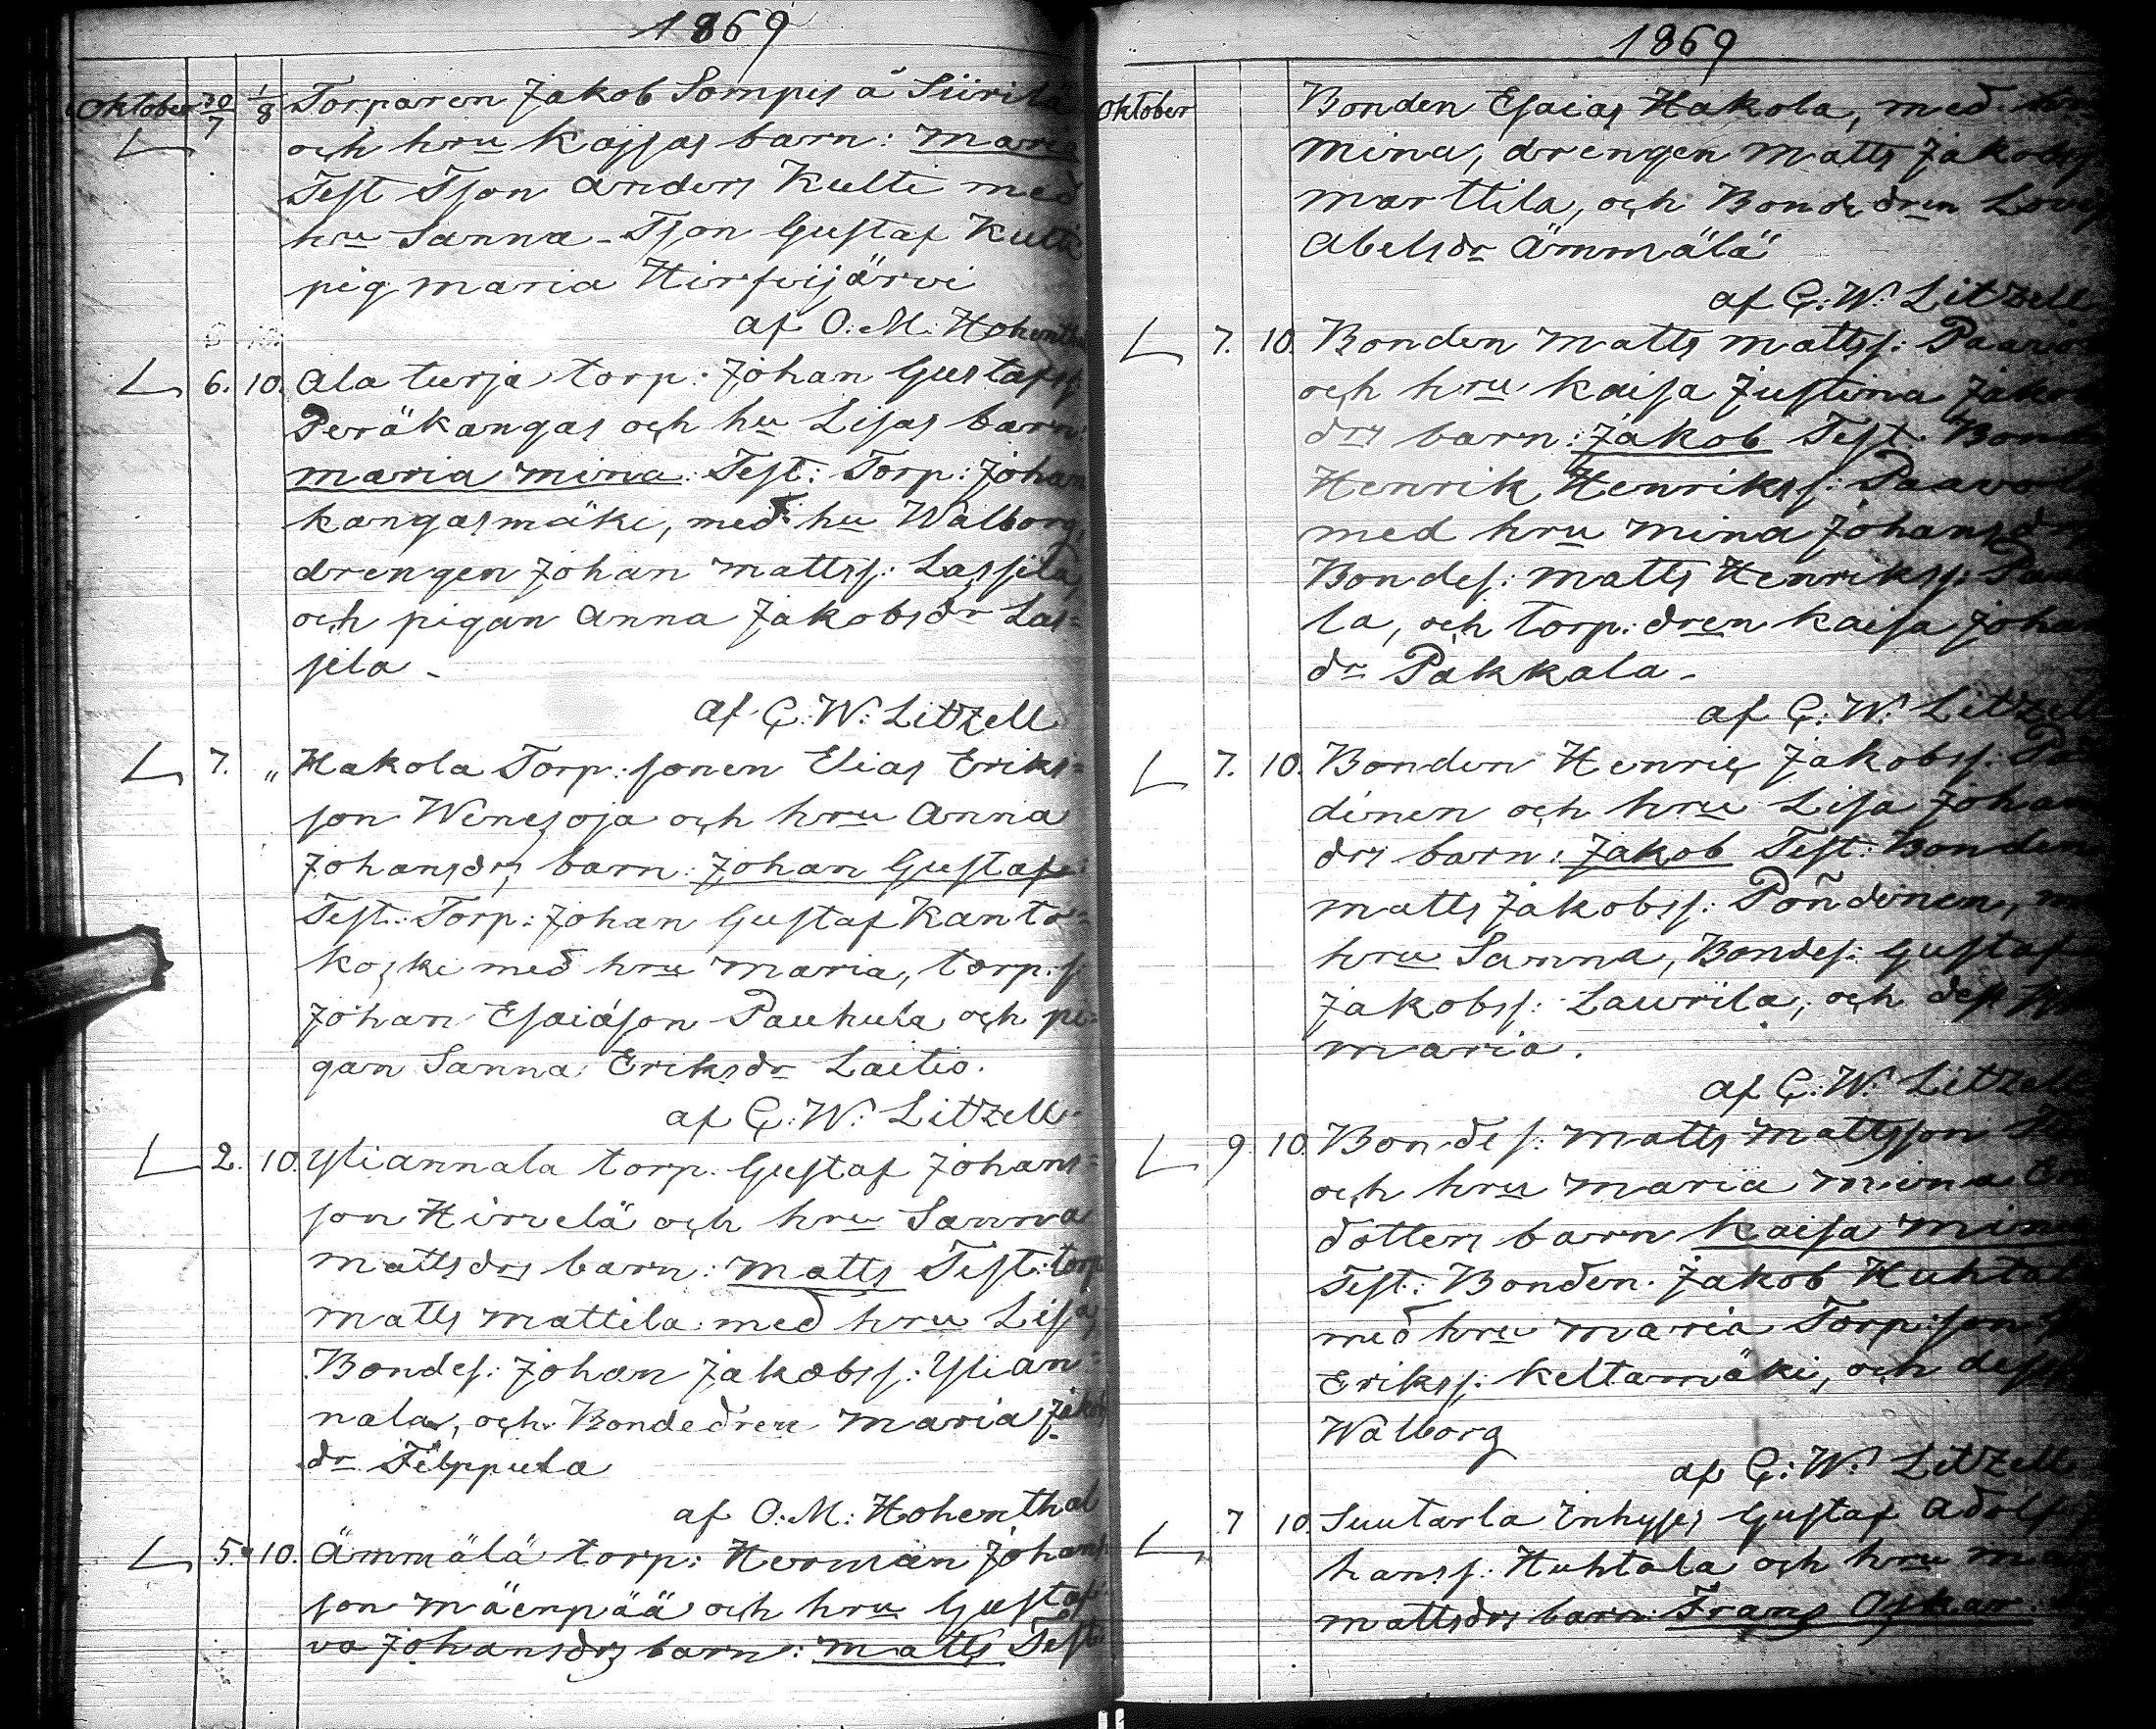 1869
Oktober 30/7 1/8 Torparen Jakob Sompis å Siirilä
och hru Kajsas barn: Maria
Test Tson Anders Kulti med
hru Sanna - Tson Gustaf Kulti
pig Maria Hirfvijärvi
af O. M. Hohenth
6. 10. Ala turja torp. Johan Gustafss
Peräkangas och hu Lisas barn:
Maria Mina: Test: Torp: Johan
Kangasmäki, med hu Walborg,
drengen Johan Mattss: Lassila,
och pigan Anna Jakobsdr Las=
sila -
af G: W: Litzell
7. „ Hakola Torp: sonen Elias Eriks=
son Wenesoja och hru Anna
Johansdrs barn: Johan Gustaf:
Test: Torp: Johan Gustaf Kanto=
koski med hru Maria, torp: s:
Johan Esaiason Pauhula och pi=
gan Sanna Eriksdr Laitio.
af G: W: Litzell
2. 10. Yliannala torp. Gustaf Johans=
son Hirvelä och hru Sanna
Mattsdrs barn: Matts Test: torp
Matts Mattila med hru Lisa,
Bondes: Johan Jakobss: Ylian=
nala, och Bondedren Maria Jakobs
dr Filppula
af O. M: Hohenthal
5. 10. Ämmälä torp: Herman Johans
son Mäenpää och hru Gusta
va Johansdrs barn: Matts Test:
1869
Oktober Bonden Esaias Hakola, med
Mina, drengen Matts Jakobs
Marttila, och Bondedren Lovis
Abelsdr Ämmälä
af G: W: Litzell
7. 10. Bonden Matts Mattss:
och hru Kaisa Justina Jakob
drs barn: Jakob Test: Bonden
Henrik Henrikss: Paavola
med hru Mina Johansdr
Bondes: Matts Henrikss:
la, och torp: dren Kaisa Johan
dr Pakkala -
af G: W: Litzell
7. 10. Bonden Henric Jakobss:
dinen och hru Lisa Johan
drs barn: Jakob Test: Bonden
Matts Jakobss: Poñdinen,
hru Sanna, Bondes: Gustaf
Jakobss: Laurila, och dess
Maria.
af G: W: Litzell
9. 10. Bondes: Matts Mattsson
och hru Maria Mina
dotters barn Kaisa Mina
Test: Bonden Jakob Huhtala
med hru Maria Torp: son
Erikss: Keltamäki, och dess
Walborg
af G: W: Litzell
7 10. Suutarla Inhyses Gustaf Adolf
hanss: Huhtala och hru
Mattsdrs barn: Frans Oskar: